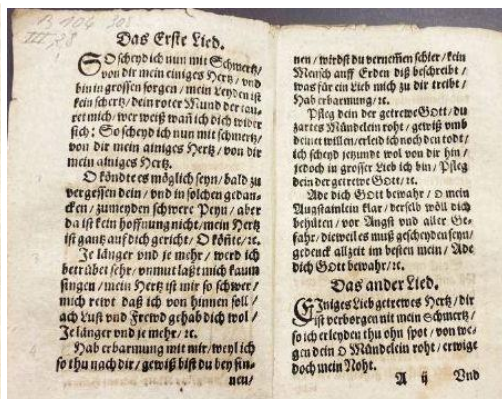 B 104 308
III 28
Das Erste Lied.
SO scheyd ich nun mit Schmertz/
von dir mein einiges Hertz / vnd
bin in grossen sorgen / mein Leyden ist
kein schertz / dein roter Mund der
ret mich / wer weiß wañ ich dich wider
sich: So scheyd ich nun mit schmertz/
von dir mein ainiges Hertz / von dir
mein ainiges Hertz.
O köndte es möglich seyn / bald zu
vergessen dein / vnd in solchen gedan-
cken / zumeyden schwere Peyn / aber
da ist kein hoffnung nicht / mein Hertz
ist gantz auf dich gericht / O könte / ꝛc.
Je länger vnd je mehr / werd ich
betrübet sehr / vnmut laßt mich kaum
singen / mein Hertz ist mir so schwer /
mich rewt daß ich von hinnen soll /
ach Lust vnd Frewd gehab dich wol /
Je länger vnd je mehr / ꝛc.
Hab erbarmung mit mir / weyl ich
so thu nach dir / gewiß bist du bey sin-
nen /
nen / wirdst du vernem̃en schier / kein
Mensch auff Erden diß beschreibt /
was für ein Lieb mich zu dir treibt /
Hab erbarmung / ꝛc.
Pfleg dein der getrewe GOtt / du
zartes Mündelein roht / gewiß vmb
deinet willen / erled ich noch den todt /
ich scheyd jetzundt wol von dir hin /
jedoch in grosser Lieb ich bin / Pfleg
dein der getrewe GOtt / ꝛc.
Ade dich GOtt bewahr / O mein
Augstainlein klar / derselb wöll dich
behüten / vor Angst vnd aller Ge-
fahr / dieweil es muß gescheyden seyn /
gedenck allzeit im besten mein / Ade
dich GOtt bewahr / ꝛc.
Das ander Lied.
EJniges Lieb getrewes Hertz / dir
ist verborgen nit mein Schmertz /
so ich erleyden thu ohn spot / von we-
gen dein O Mündelein roht / erwige
doch mein Noht.
A ij Vnd